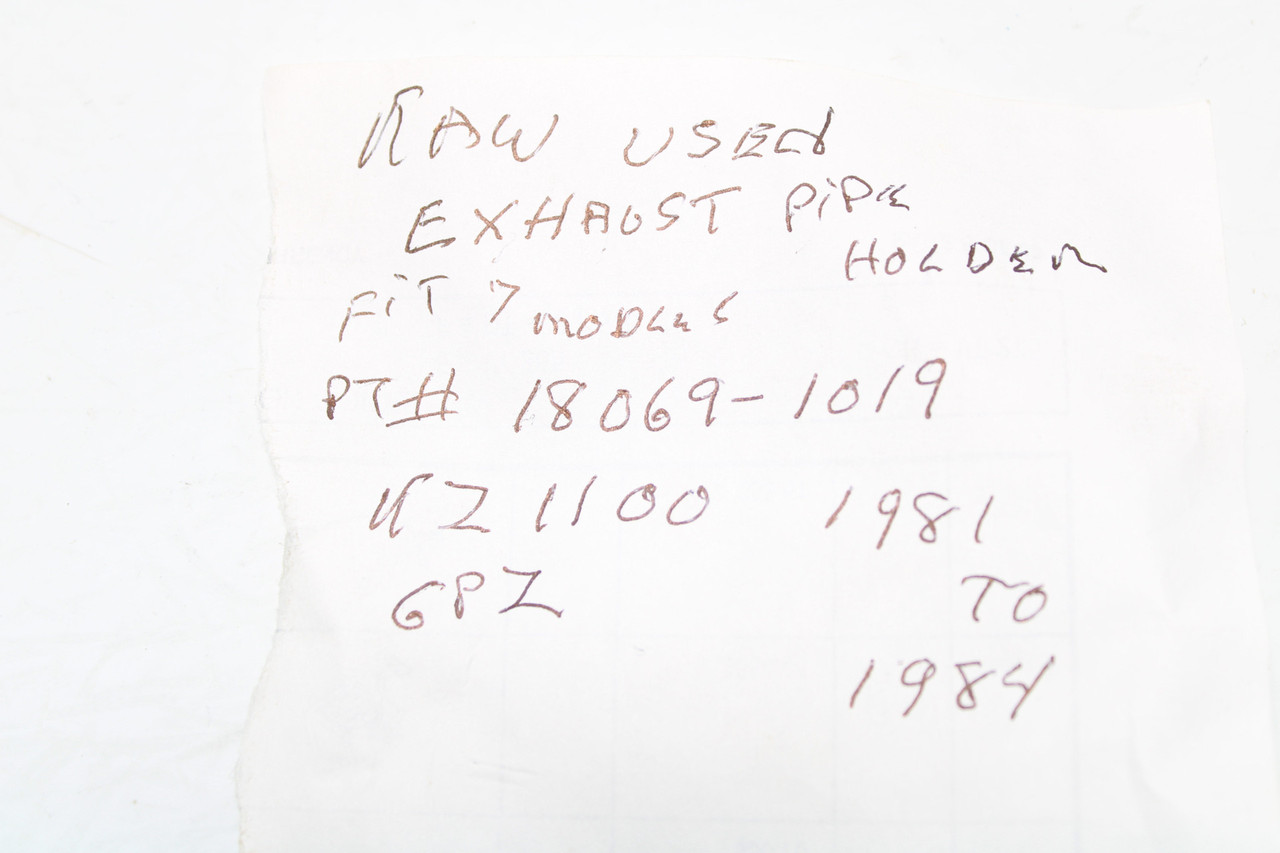 KAW USED
EXHAUST PIPE
HOLDER
FIT 7 MODELS
PT# 18069-1019
KZ 1100 1981
GPZ TO
1984